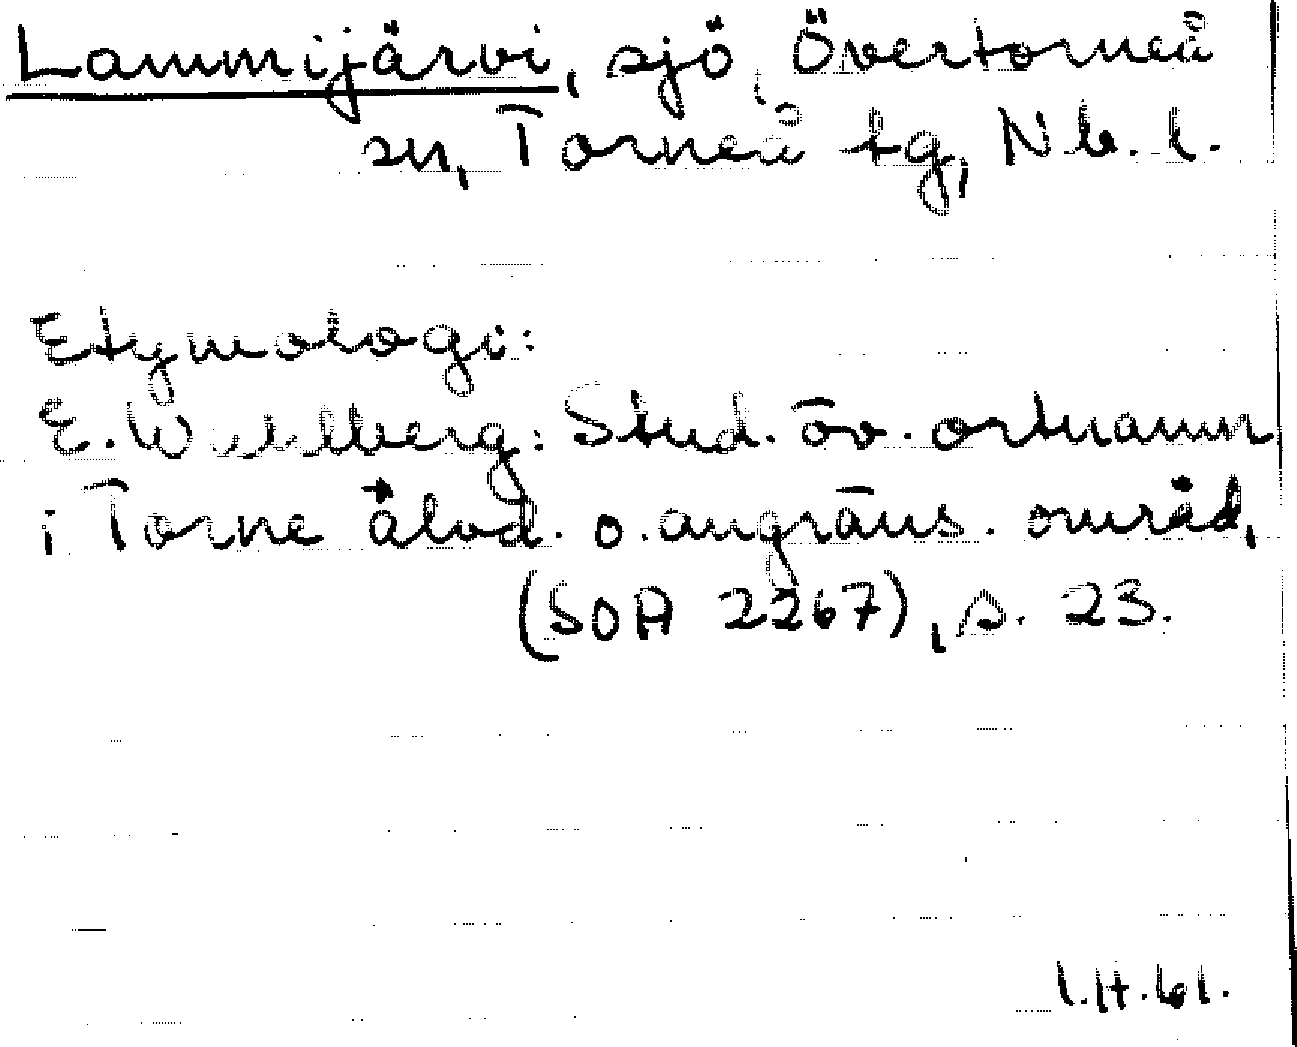 Lammijärvi, sjö, Övertorneå
sn, Torneå tg, Nb. l.
Etymologi:
E. Wahlberg: Stud. öv. ortnamn
i Torne älvd. o. angräns. områd,
(SOA 2267), s. 23.
I.H.61.